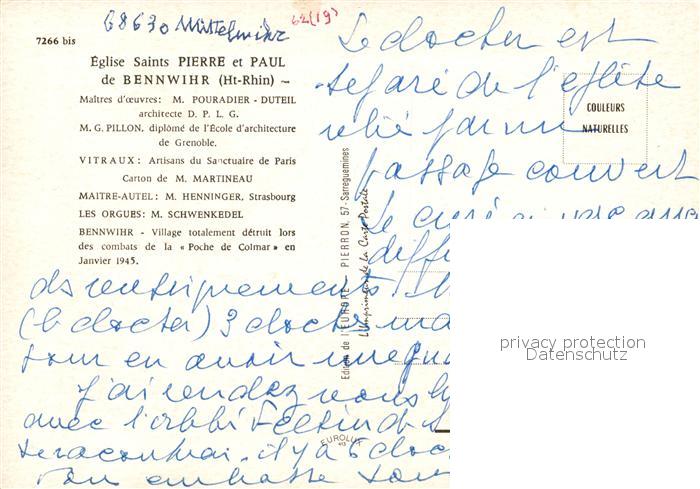 68630 Mittelwihr
62 (19)
7266 bis
Église Saints PIERRE et PAUL
de BENNWIHR (Ht-Rhin) ~
Maîtres d'œuvres: M. POURADIER - DUTEIL
architecte D. P. L. G.
M. G. PILLON, diplômé de l'École d'architecture
de Grenoble.
VITRAUX: Artisans du Sanctuaire de Paris
Carton de M. MARTINEAU
MAITRE-AUTEL: M. HENNINGER, Strasbourg
LES ORGUES: M. SCHWENKEDEL
BENNWIHR - Village totalement détruit lors
des combats de la « Poche de Colmar » en
Janvier 1945.
COULEURS
NATURELLES
Editions de l'EUROPE - PIERRON, 57-Sarreguemines
L'Imprimeur de la Carte Postale
Le clocher est
séparé de l'église
relié par un
passage couvert
Le curé
diff
(le clocher) 3
en avoir
J'ai rendez vous
avec l'abbé
il y a 6
embrasse
EUROLUX
privacy protection
Datenschutz